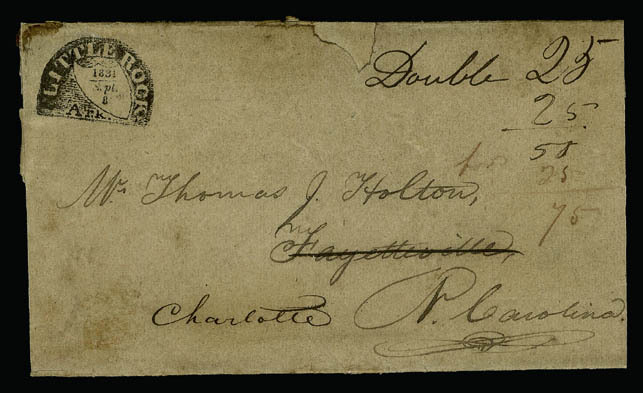 LITTLE ROCK
1831
Spt.
8
Ark.
Double 25
25
50
25
75
Mr Thomas J. Holton,
Fayetteville,
Charlotte N. Carolina.